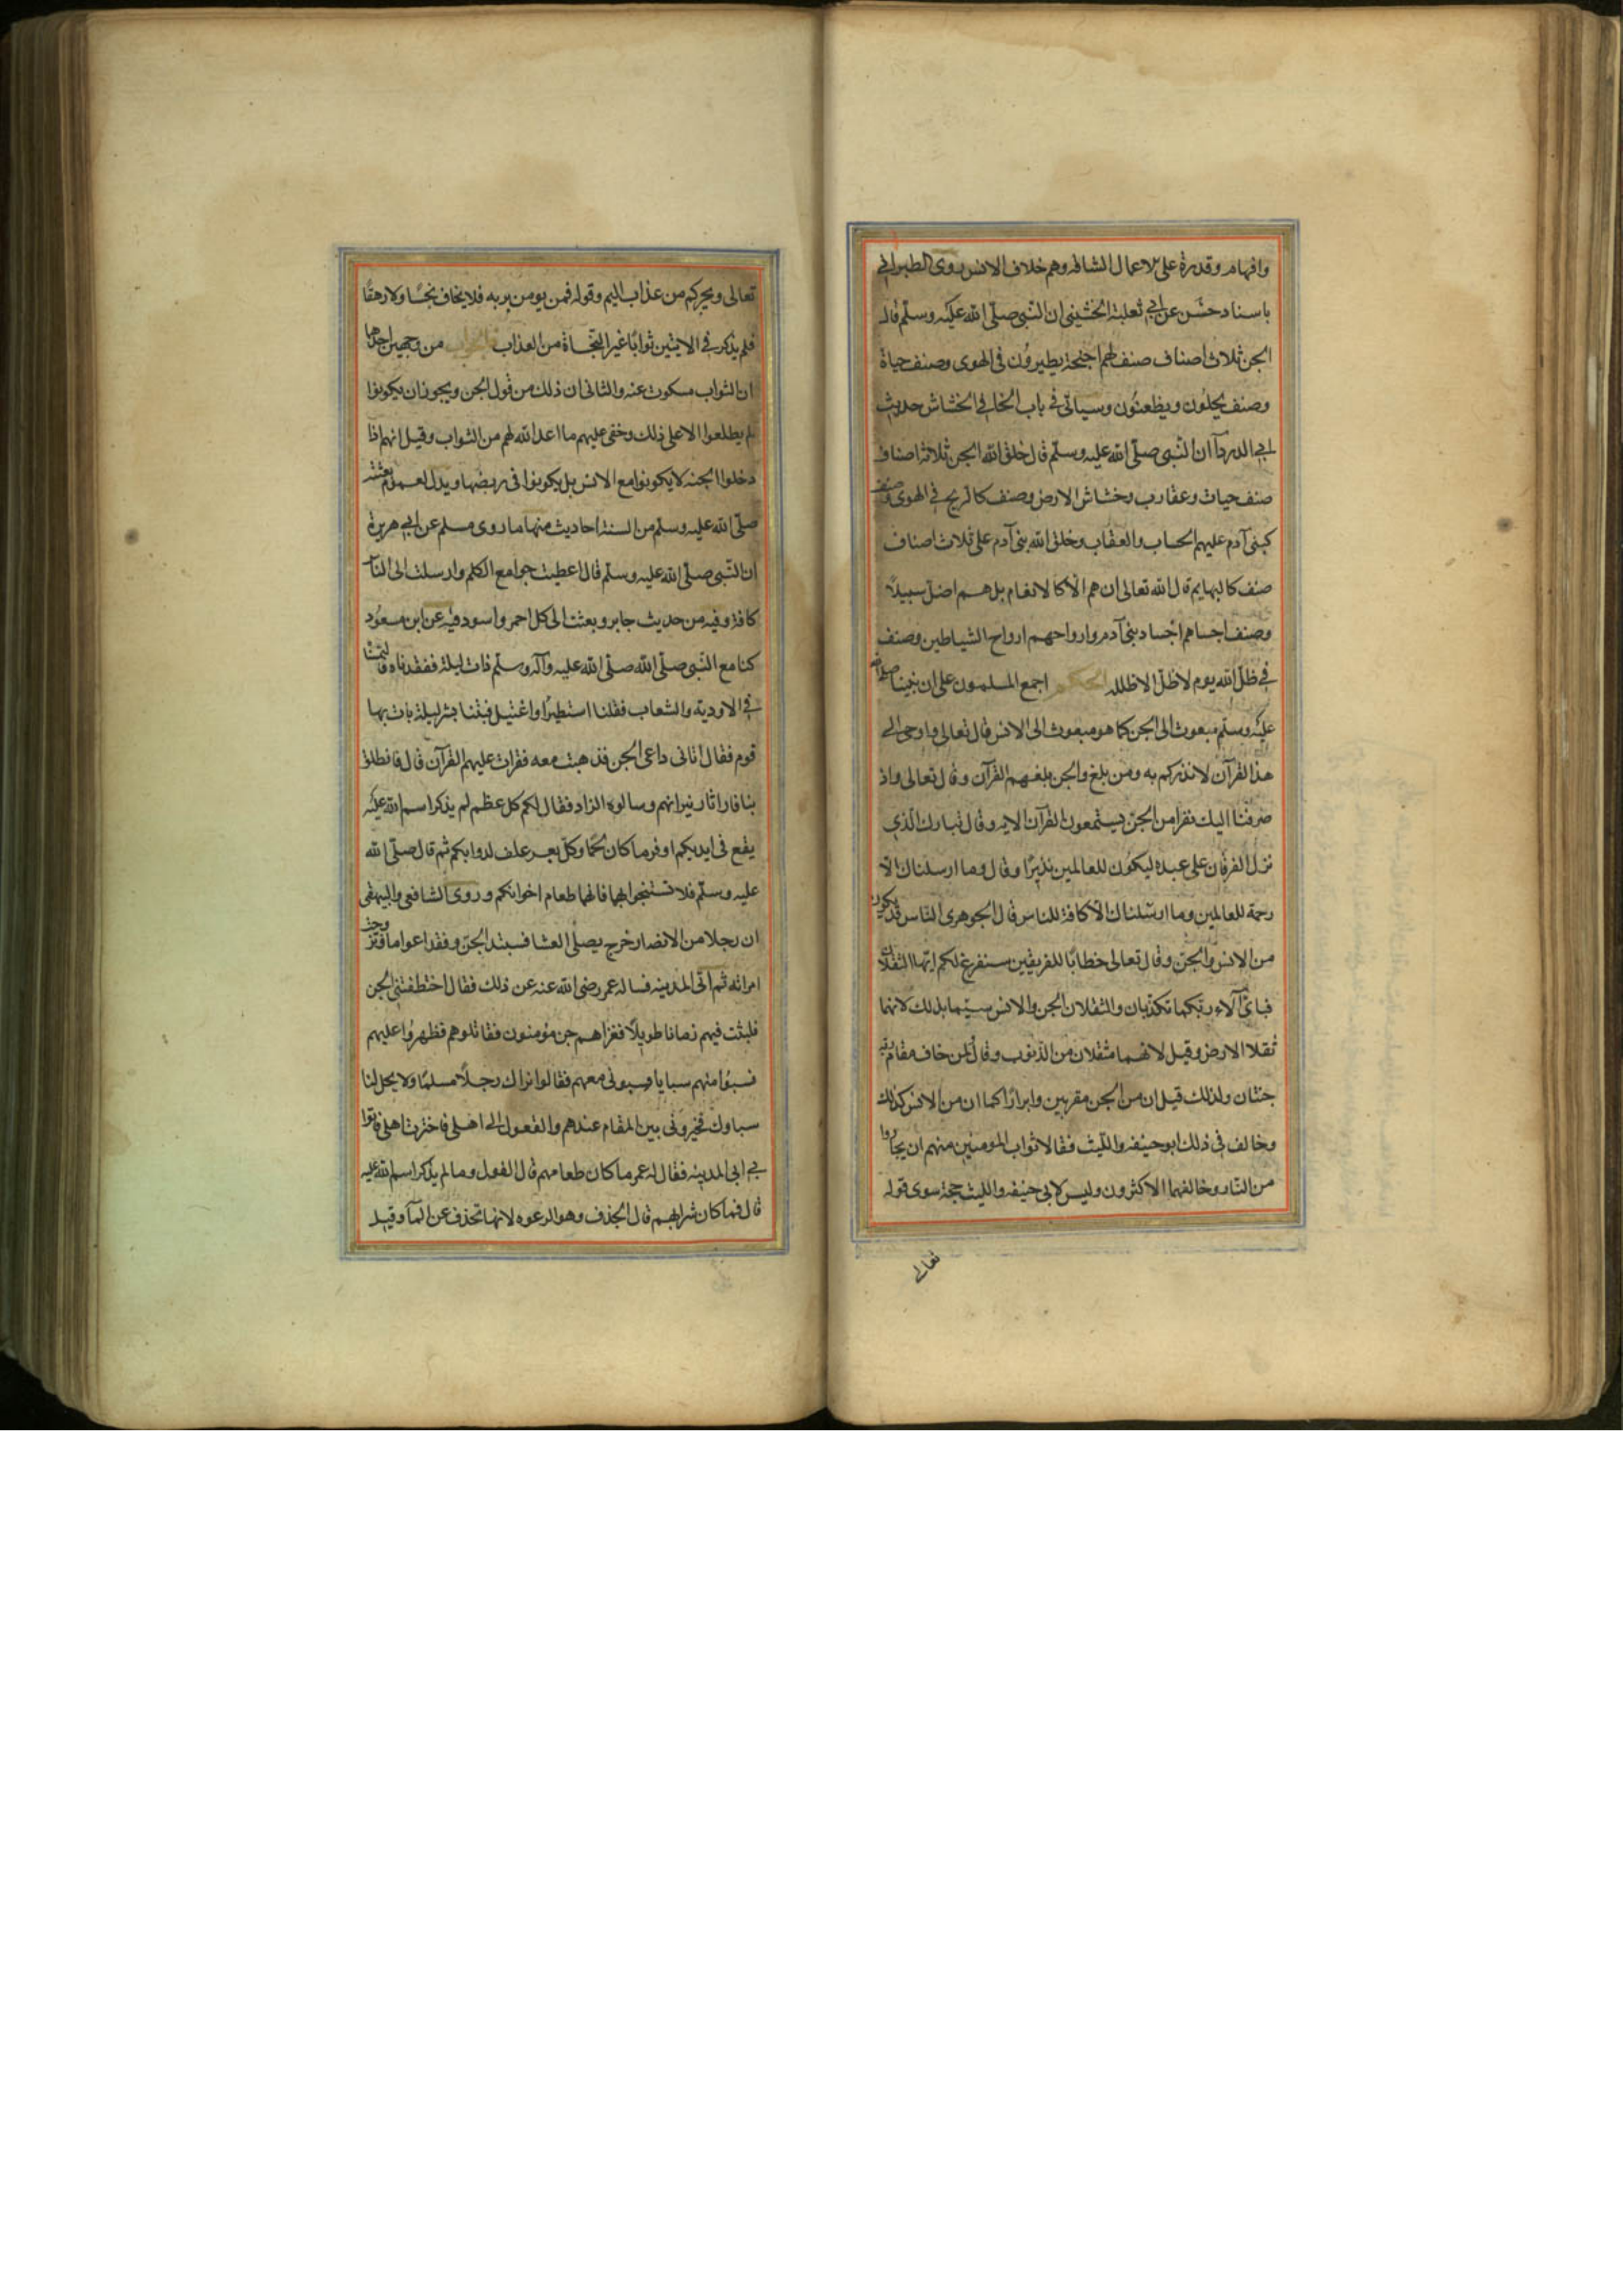 وافهام وقدرة على الاعمال الشاقه وهم خلاف الانس روى الطبراني
باسناد حسن عن ابي ثعلبة الخشيني ان النبي صلى الله عليه وسلم قال
الجن ثلاث اصناف صنف لهم اجنحة يطيرون في الهوى وصنف حياة
وصنف يحلون ويظعنون وسياتي في باب الخا في الخشاش حديث
ابي الدردآ ان النبي صلى الله عليه وسلم قال خلق الله الجن ثلاثة اصناف
صنف حيات وعقارب وخشاش الارض وصنف كالريح في الهوى وصنف
كبني آدم عليهم الحساب والعقاب وخلق الله بني آدم على ثلاث اصناف
صنف كالبهايم قال الله تعالى ان هم الا كالانعام بل هم اضل سبيلا
وصنف اجسامهم اجساد بني آدم وارواحهم ارواح الشياطين وصنف
في ظل الله يوم لا ظل الا ظله الحكم اجمع المسلمون على ان نبينا صلى الله
عليه وسلم مبعوث الى الجن كما هو مبعوث الى الانس قال تعالى واوحى الي
هذا القرآن لانذركم به ومن بلغ والجن بلغهم القرآن وقال تعالى واذ
صرفنا اليك نفرا من الجن يستمعون القرآن الايه وقال تبارك الذي
نزل الفرقان على عبده ليكون للعالمين نذيرا وقال وما ارسلناك الا
رحمة للعالمين وما ارسلناك الا كافة للناس قال الجوهرى الناس قد يكون
من الانس والجن وقال تعالى خطابا للفريقين سنفرغ لكم ايها الثقلان
فباى آلاء ربكما تكذبان والثقلان الجن والانس سيما بذلك لانهما
ثقلا الارض وقيل لانهما مثقلان من الذنوب وقال لمن خاف مقام ربه
جنتان ولذلك قيل ان من الجن مقربين وابرارا كما ان من الانس كذلك
وخالف في ذلك ابو حنيفه والليث فقالا ثواب المومنين منهم ان يجاروا
من النار وخالفهما الاكثرون وليس لابي حنيفه والليث حجة سوى قوله
تعالى
تعالى ويجركم من عذاب اليم وقوله فمن يومن بربه فلا يخاف بخسا ولا رهقا
فلم يذكر في الايتين ثوابا غير النجاة من العذاب والجواب من وجهين احدهما
ان الثواب مسكوت عنه والثاني ان ذلك من قول الجن ويجوز ان يكونوا
لم يطلعوا الا على ذلك وخفى عليهم ما اعد الله لهم من الثواب وقيل انهم اذا
دخلوا الجنه لا يكونوا مع الانس بل يكونوا في ربضها ويدل لعموم بعثته
صلى الله عليه وسلم من السنة احاديث منها ما روى مسلم عن ابي هريرة
ان النبي صلى الله عليه وسلم قال اعطيت جوامع الكلم وارسلت الى الناس
كافة وفيه من حديث جابر وبعثت الى كل احمر واسود فيه عن ابن مسعود
كنا مع النبي صلى الله صلى الله عليه وآله وسلم ذات ليلة ففقدناه فالتمسنا
في الاودية والشعاب فقلنا استطيرا واغتيل فبتنا بشر ليلة بات بها
قوم فقال اتاني داعي الجن فذهبت معه فقرات عليهم القرآن قال فانطلق
بنا فارا اثار نيرانهم وسالوه الزاد فقال لكم كل عظم لم يذكر اسم الله عليه
يقع في ايديكم اوفر ما كان لحما وكل بعر علف لدوابكم ثم قال صلى الله
عليه وسلم فلا تستنجوا بهما فانهما طعام اخوانكم وروى الشافعي والبيهقي
ان رجلا من الانصار خرج يصلى العشا فسبته الجن وفقد اعواما وتزوجت
امراته ثم اتى المدينه فساله عمر رضي الله عنه عن ذلك فقال اختطفتني الجن
فلبثت فيهم زمانا طويلا فغزاهم جن مؤمنون فقاتلوهم فظهروا عليهم
فسبوا منهم سبايا وسبوني معهم فقالوا نراك رجلا مسلما ولا يحل لنا
سباوك فخيروني بين المقام عندهم والقعول الى اهلي فاخترت اهلي فاتوا
بي ابي المدينه فقال له عمر ما كان طعامهم قال الفول وما لم يذكر اسم الله عليه
قال فما كان شرابهم قال الجذف وهو الرغوه لانها تجذف عن المآ وقيل